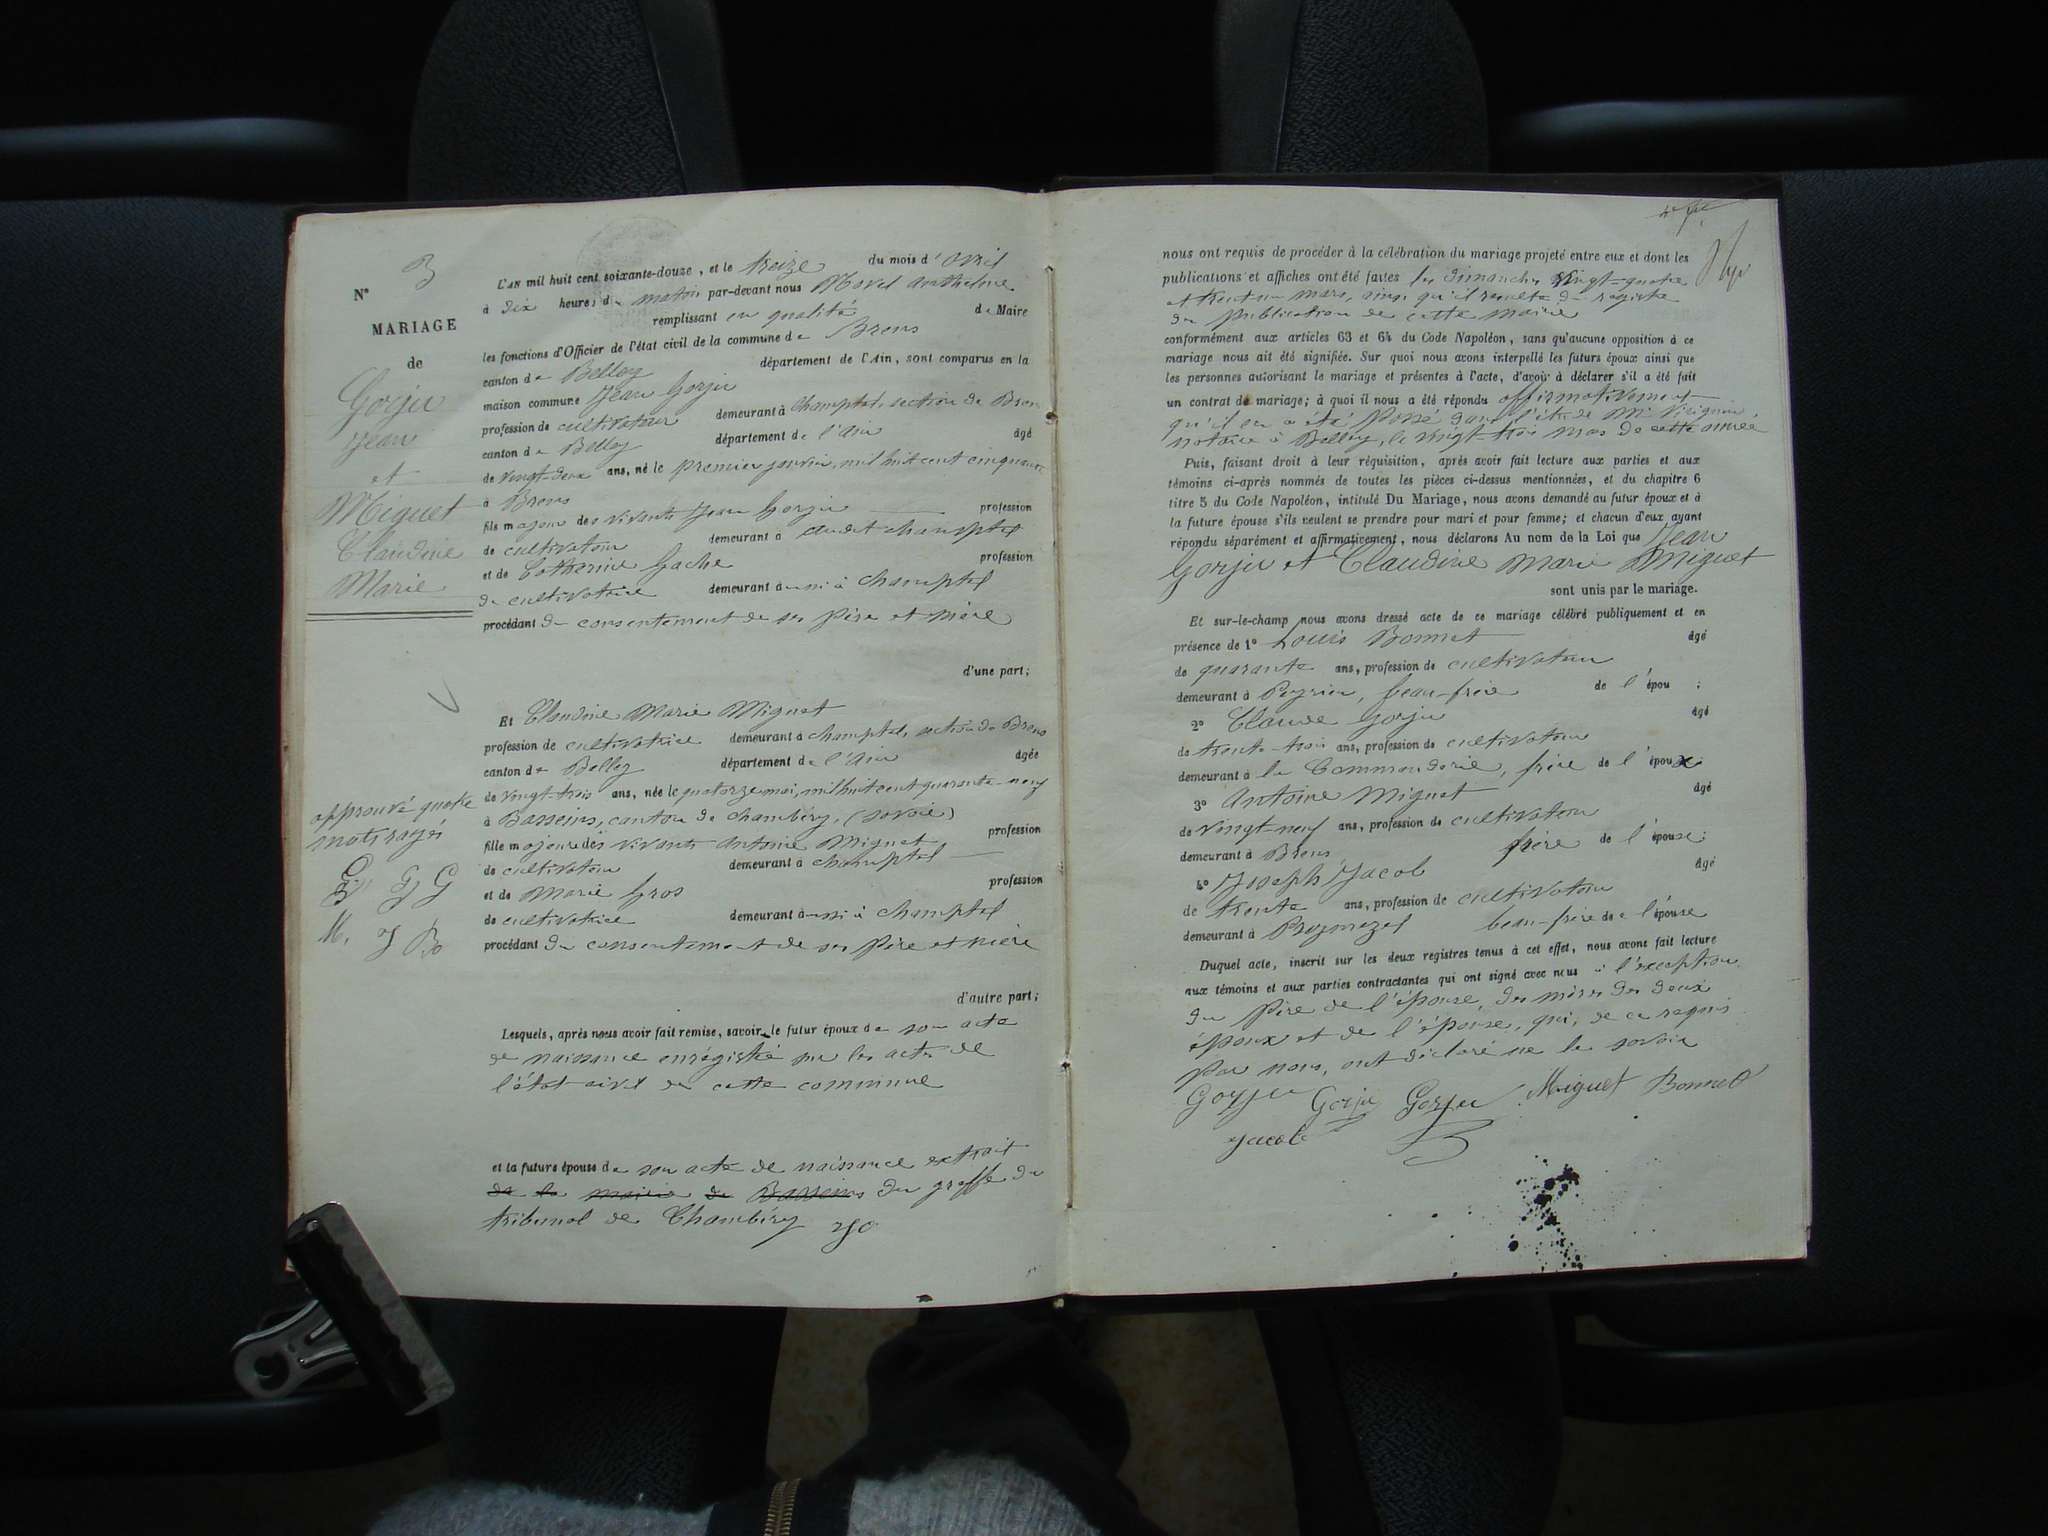 N° 3
MARIAGE
de
Gorju
Jean
et
Miguet
Claudine
Marie
approuvé quatre
mots rayés
G. G G
M. J Bo
L'AN mil huit cent soixante-douze, et le treize du mois d'avril
à dix heures du matin par-devant nous Morel Anthelme
remplissant en qualité de Maire
les fonctions d'Officier de l'état civil de la commune de Brens
canton de Belley département de l'Ain, sont comparus en la
maison commune Jean Gorju
profession de cultivateur demeurant à Champtel, section de Brens
canton de Belley département de l'Ain âgé
de vingt-deux ans, né le premier janvier, mil huit cent cinquante
à Brens
fils majeur des vivants Jean Gorju profession
de cultivateur demeurant à audit Champtel
et de Catherine Gache profession
de cultivatrice demeurant aussi à Champtel
procédant du consentement de ses père et mère
d'une part;
Et Claudine Marie Miguet
profession de cultivatrice demeurant à Champtel, section de Brens
canton de Belley département de l'Ain âgée
de vingt-trois ans, née le quatorze mai, mil huit cent quarante-neuf
à Bassens, canton de Chambéry, (Savoie)
fille majeure des vivants Antoine Miguet profession
de cultivateur demeurant à Champtel
et de Marie Gros profession
de cultivatrice demeurant aussi à Champtel
procédant du consentement de ses père et mère
d'autre part;
Lesquels, après nous avoir fait remise, savoir, le futur époux de son acte
de naissance enregistré sur les actes de
l'état civil de cette commune
et la future épouse de son acte de naissance extrait
de la mairie de Bassens du greffe du
tribunal de Chambéry
nous ont requis de procéder à la célébration du mariage projeté entre eux et dont les
publications et affiches ont été faites les dimanches vingt-quatre
et trente un mars, ainsi qu'il résulte du registre
des publications de cette mairie
conformément aux articles 63 et 64 du Code Napoléon, sans qu'aucune opposition à ce
mariage nous ait été signifiée. Sur quoi nous avons interpellé les futurs époux ainsi que
les personnes autorisant le mariage et présentes à l'acte, d'avoir à déclarer s'il a été fait
un contrat de mariage; à quoi il nous a été répondu affirmativement
qu'il en a été passé dans l'étude Me
notaire à Belley, le vingt-trois mars de cette année
Puis, faisant droit à leur réquisition, après avoir fait lecture aux parties et aux
témoins ci-après nommés de toutes les pièces ci-dessus mentionnées, et du chapitre 6
titre 5 du Code Napoléon, intitulé Du Mariage, nous avons demandé au futur époux et à
la future épouse s'ils veulent se prendre pour mari et pour femme; et chacun d'eux ayant
répondu séparément et affirmativement, nous déclarons Au nom de la Loi que Jean
Gorju et Claudine Marie Miguet
sont unis par le mariage.
Et sur-le-champ nous avons dressé acte de ce mariage célébré publiquement et en
présence de 1° Louis Bonnet âgé
de quarante ans, profession de cultivateur
demeurant à Peyrieu, beau-frère de l'épou ;
2° Claude Gorju âgé
de trente-trois ans, profession de cultivateur
demeurant à la Commanderie, frère de l'époux
3° Antoine Miguet âgé
de vingt-neuf ans, profession de cultivateur
demeurant à Brens frère de l'épouse;
4° Joseph Jacob âgé
de trente ans, profession de cultivateur
demeurant à beau-frère de l'épouse
Duquel acte, inscrit sur les deux registres tenus à cet effet, nous avons fait lecture
aux témoins et aux parties contractantes qui ont signé avec nous à l'exception
du père de l'épouse, des mères des deux
époux et de l'épouse, qui, de ce requis
par nous, ont déclaré ne le savoir
Gorju Gorju Gorju Miguet Bonnet
Jacob